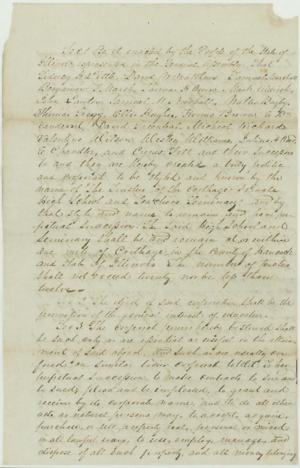 Sec 1 Be it enacted by the People of the State of
Illinois represented in the General Assembly, That
Sidney
Benjamin F. March,
John Taylor, Samuel
Thomas Hughes,
David Michael Rickards
Wesley Williams,
and their successors
be and they are hereby created a body politic
and corporate to be styled and known by the
name of The Trustees of the Carthage Female
High School and Teachers Seminary; and by
that style and name to remain and have per-
petual succession. The said High School and
Seminary shall be and remain at or within
one mile of Carthage in the County of Hancock
and State of Illinois. The number of trustees
shall not exceed twenty nor be less than
twelve
Sec 2 The object of said corporation shall be the
promotion of the general interest of education.
Sec 3 The corporate powers hereby bestowed shall
be such only as are essential or useful in the attain-
ment of said object, and such as are usually con-
ferred on similar bodies corporate to have
perpetual succession, to make contracts to sue and
be sued, plead and be impleaded, to grant and
receive by its corporate name and to do all other
acts as natural persons may, to accept, acquire,
purchase or sell property real, personal or mixed
in all lawful ways, to use, employ, manage and
dispose of all such property, and all money belonging